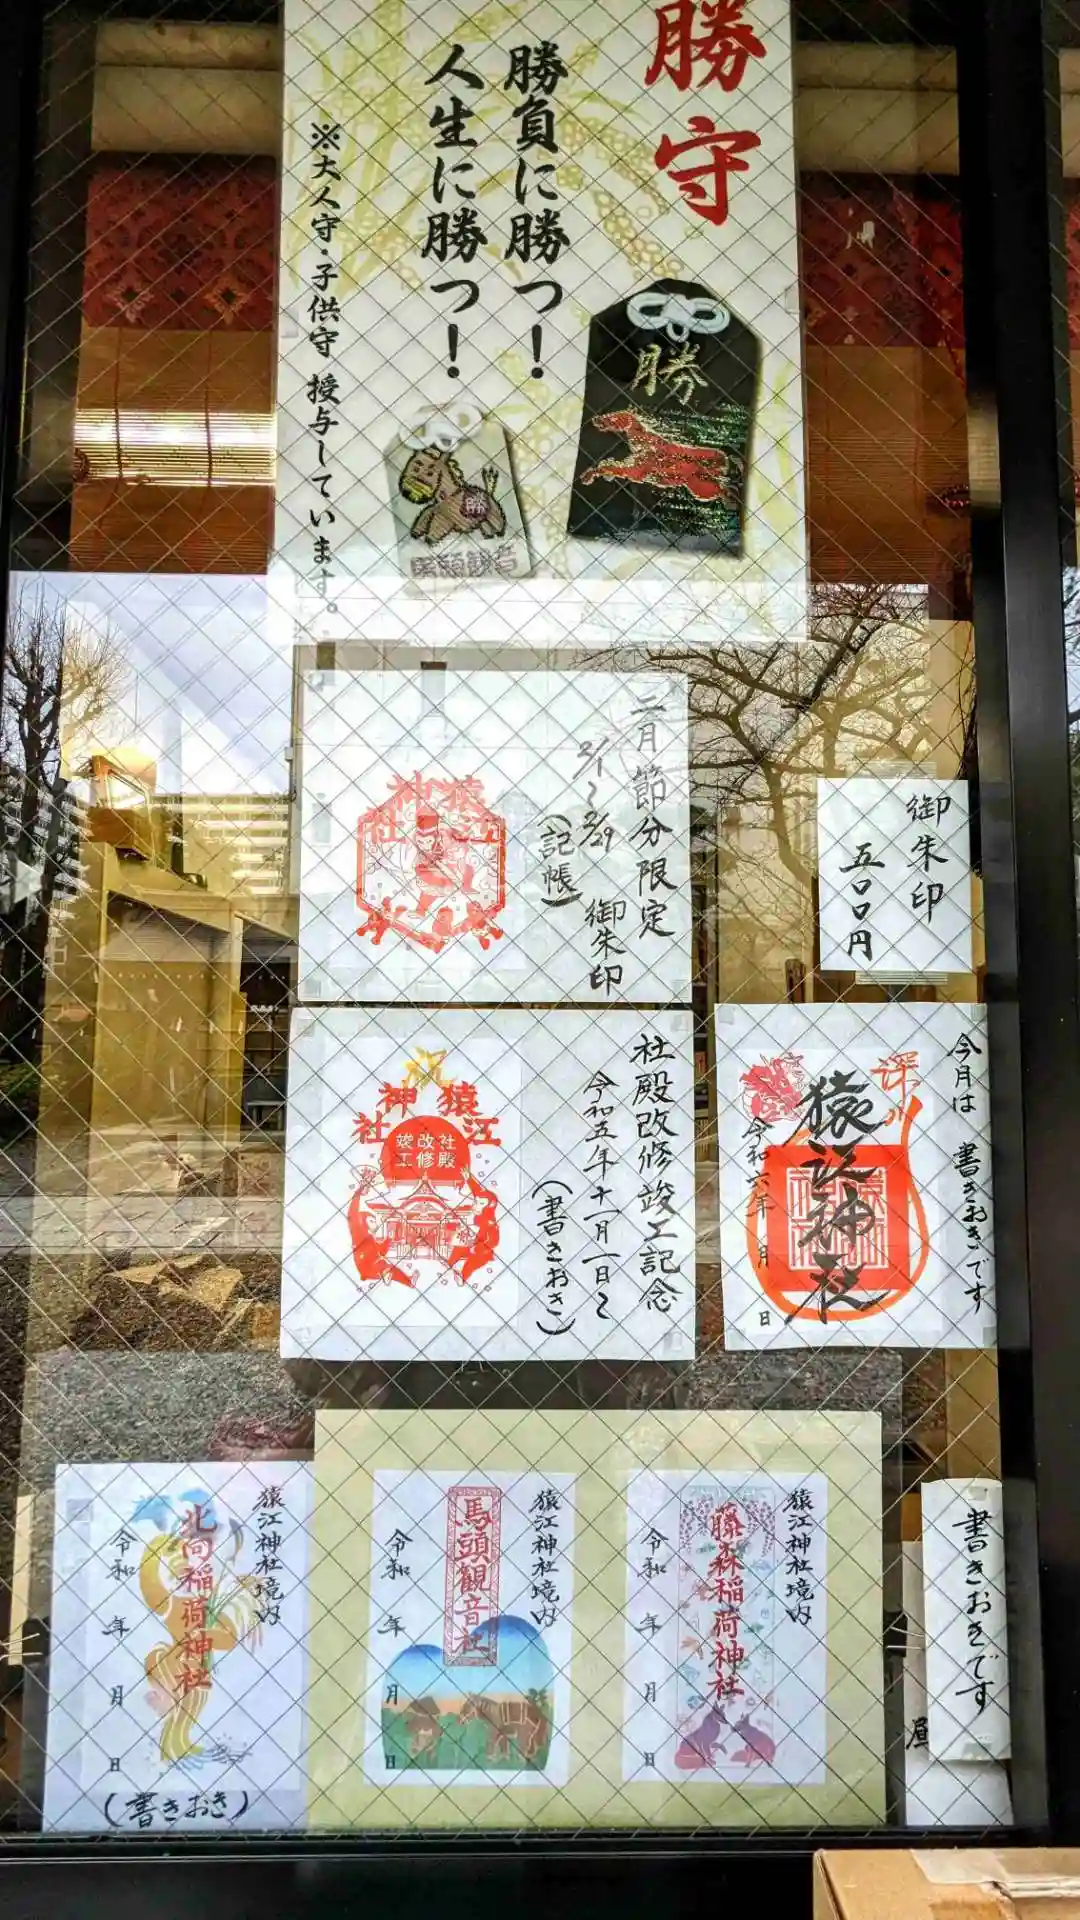 勝守
勝負に勝つ！
人生に勝つ！
※大人守・子供守 授与しています。
勝
勝
馬頭観音
二月節分限定
御朱印
2/1〜2/29
(記帳)
猿江
神社
御朱印
五〇〇円
社殿改修竣工記念
令和五年十一月一日〜
(書きおき)
祝
猿江
神社
社殿
改修
竣工
今月は 書きおきです
深川
猿江神社
令和六年
月
日
猿江神社境内
藤森稲荷神社
令和 年 月 日
猿江神社境内
馬頭観音社
令和 年 月 日
猿江神社境内
北向稲荷神社
令和 年 月 日
(書きおき)
書きおきです
昼